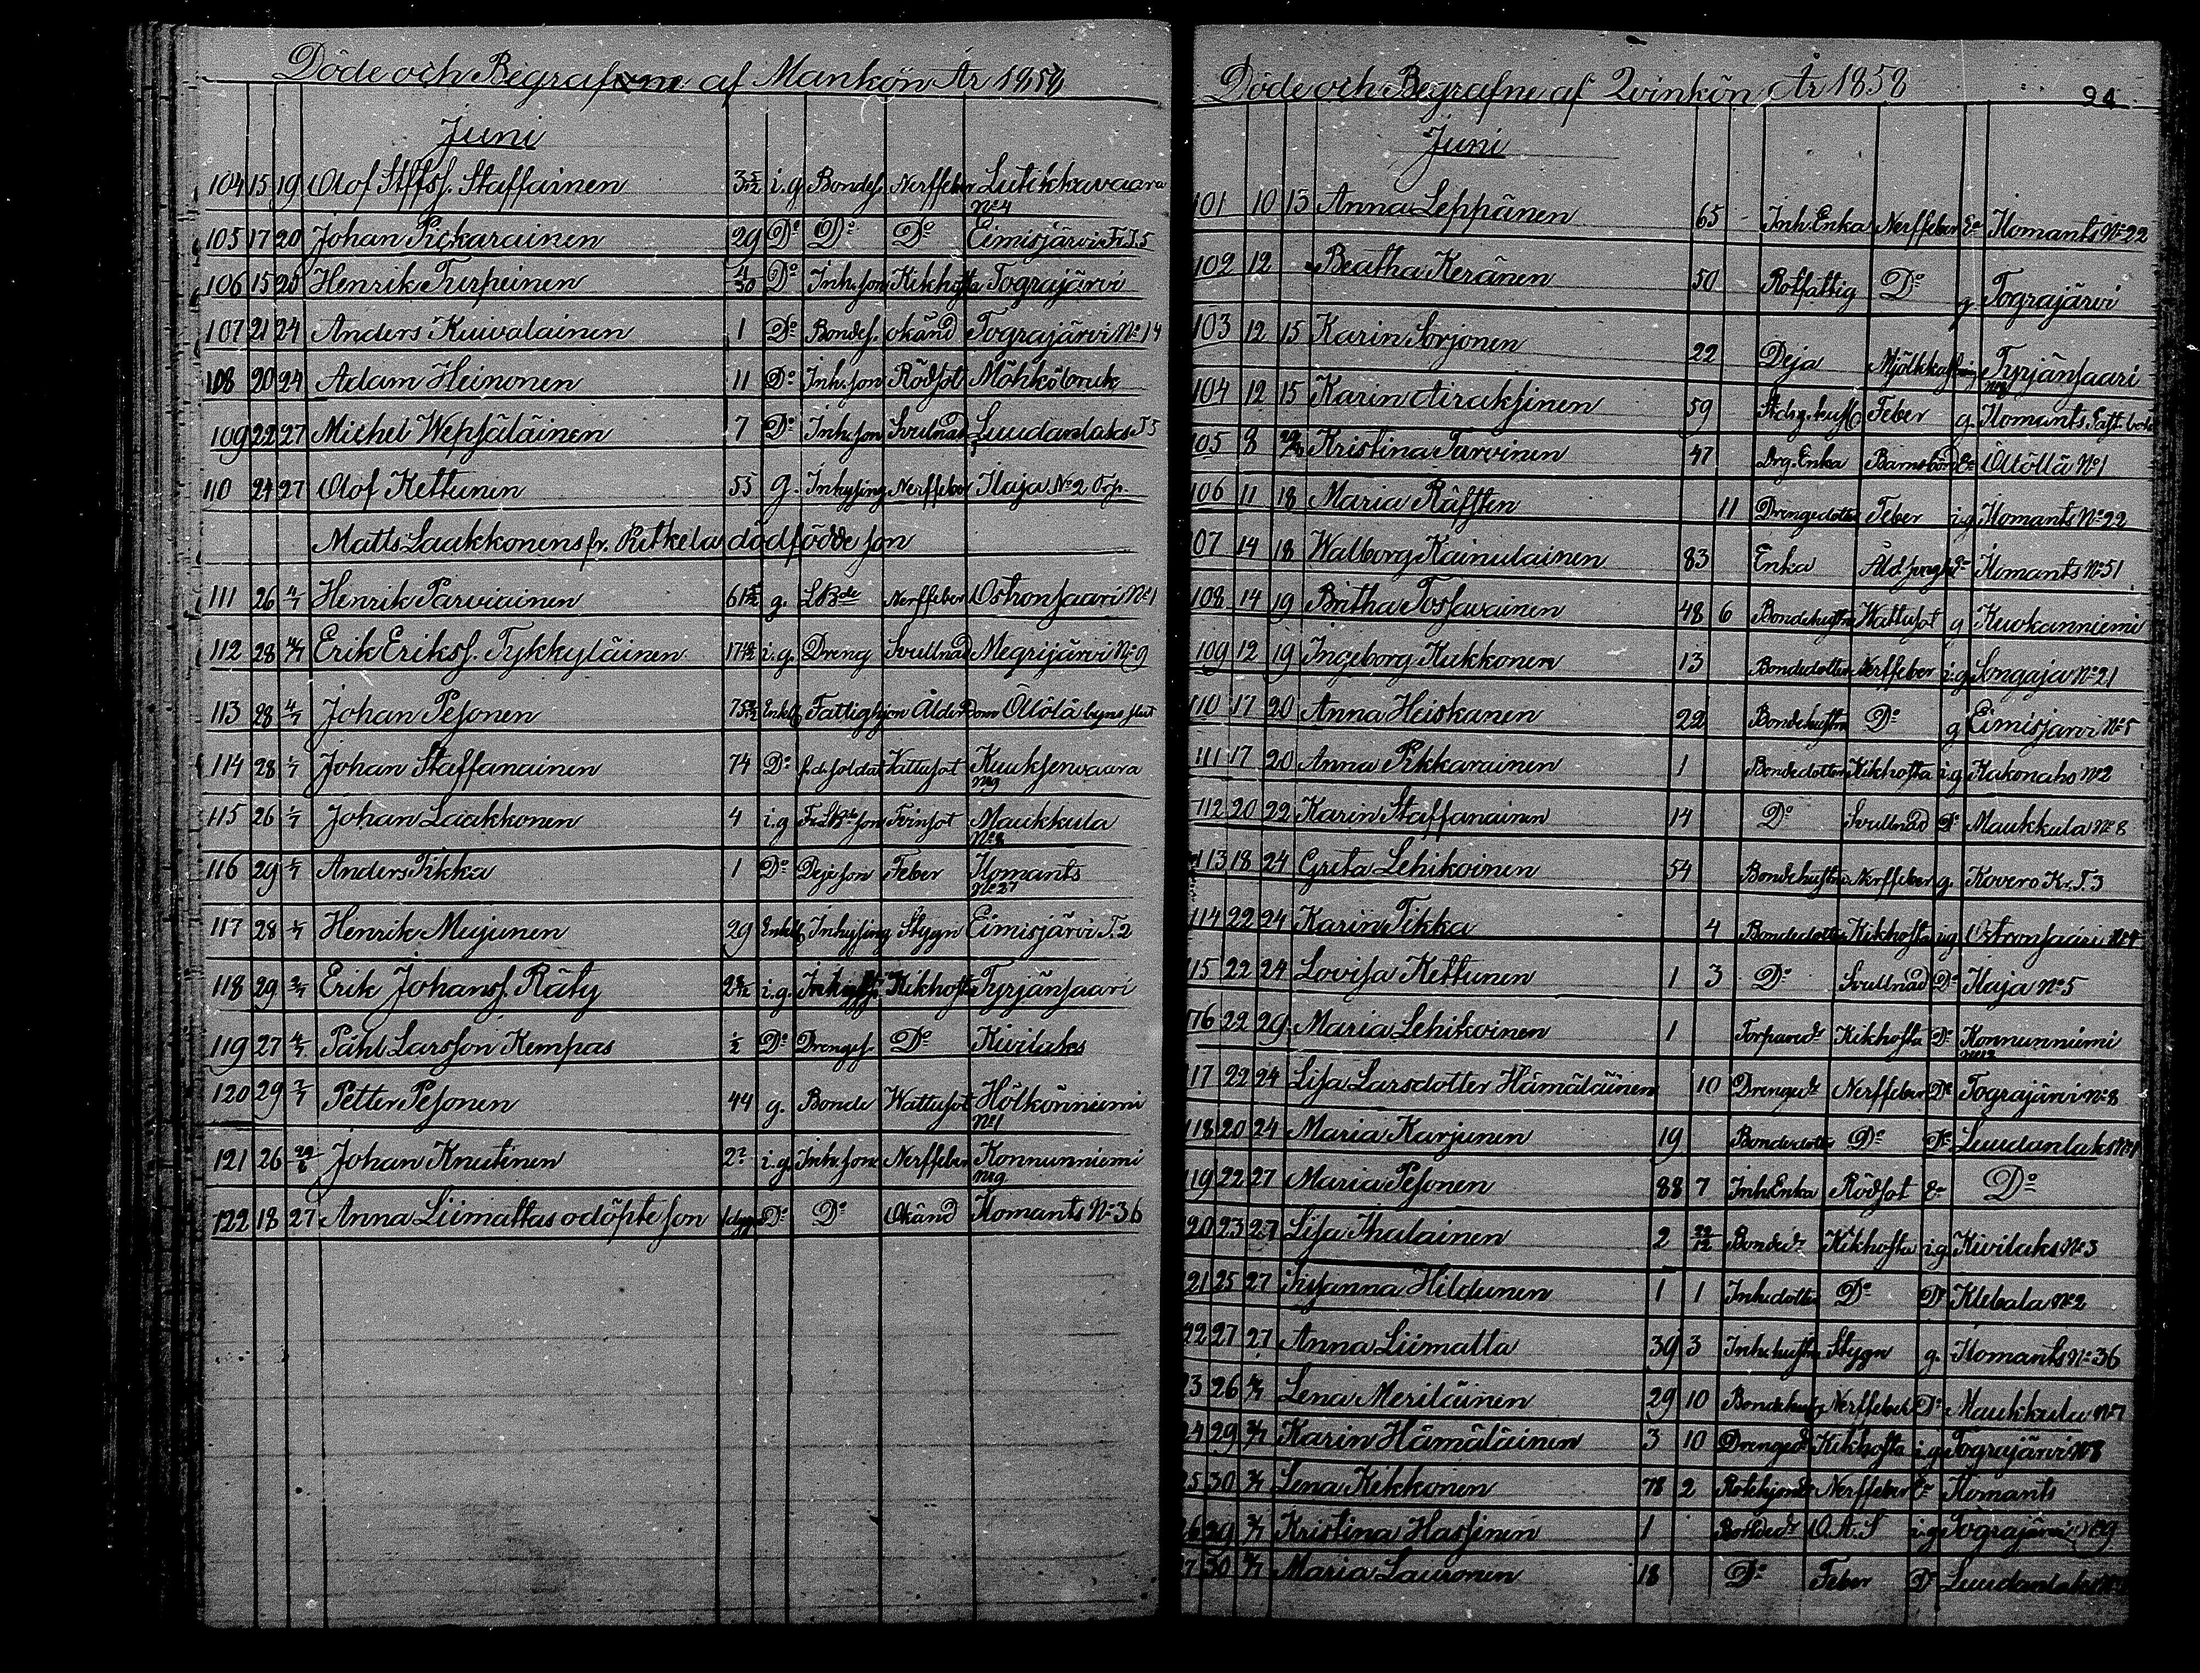 Döde och Begrafne af Mankön År 1858
Juni
104 15 19 Olof Stffsf. Staffainen 3 5/12 i.g Bondes. Nerffeber Lutikkavaara
No 4
105 17 20 Johan Pickarainen 29 Do Do Do Eimisjärvi Fr.T.5
106 15 20 Henrik Turpeinen 4/30 Do Inh.son Kikhosta Tograjärvi
107 21 24 Anders Kuivalainen 1 Do Bondes. okänd Tograjärvi No 14
108 20 24 Adam Heinonen 11 Do Inh.son Rödsot Möhköbruk
109 22 27 Michel Wepsäläinen 7 Do Inh.son Svullnad Luudanlaks T5
110 24 27 Olof Kettunen 55 g. Inhysing Nerffeber Ilaja No 2
Matts Laakkonens fr. Putkela dödfödde son
111 26 4/7 Henrik Parviainen g. Nerffeber Ostronsaari No 1
112 28 4/7 Erik Eriksf. Tykkyläinen i.g. Dreng Svullnad Megrijärvi No 9
113 28 4/7 Johan Pesonen Enkl. Fattighjon Ålderdom Ötölä
114 28 Johan Staffanainen 74 Do f.d. soldat Vattusot Kuuksenvaara
No 9
115 26 Johan Laakkonen 4 i.g Tvinsot Maukkula
No 8
116 29 Anders Tikka 1 Do Dejeson Feber Ilomants
No 27
117 28 Henrik Mujunen 29 Enkl. Inhysing Stygn Eimisjärvi T.2
118 29 Erik Johansf. Räty i.g. Kikhosta Tyrjänsaari
119 27 4/7 Påhl Larsson Kempas 1/2 Do Drengs. Do Kivilaks
120 29 Petter Pesonen 44 g. Bonde Wattusot Hölkönniemi
No 1
121 26 29/6 Johan Knutinen i.g. Inh.son Nerffeber Konnunniemi
No 9
122 18 27 Anna Liimattas odöpte son Do Do Okänd Ilomants No 36
Döde och Begrafne af Qvinkön År 1858 94
Juni
101 10 13 Anna Leppänen 65 Inh. Enka Nerffeber Do Ilomants No 22
102 12 Beatha Keränen 50 Rotfattig Do g. Tograjärvi
103 12 15 Karin Sorjonen 22 Deja Tyrjänsaari
104 12 15 Karin Airaksinen 59 Feber g. Ilomants
105 8 Kristina Tarvinen 47 Drg. Enka Barnsbörd Do Ötöllä No 1
106 11 18 Maria Räfften 11 Drengedotter Feber i.g Ilomants No 22
107 14 18 Walborg Kainulainen 83 Enka Ilomants No 51
108 14 19 Britha Tossavainen 48 6 Bondehustru Wattusot g Kuokanniemi
109 12 19 Ingeborg Kukkonen 13 Bondedotter Nerffeber i.g Songaja No 21
110 17 20 Anna Heiskanen 22 Bondehustru Do g Eimisjärvi No 5
111 17 20 Anna Pikkarainen 1 Bondedotter Kikhosta i.g Kakonaho No 2
112 20 22 Karin Staffanainen 14 Do Svullnad Do Maukkula No 8
113 18 24 Greta Lehikoinen 54 Bondehustru Nerffeber g. Kovero Kr.T.3
114 22 24 Karin Tikka 4 Bondedotter Kikhosta i.g Ostronsaari No 4
115 22 24 Lovisa Kettunen 1 3 Do Svullnad Do Ilaja No 5
116 22 29 Maria Lehikoinen 1 Torparedr Kikhosta Do Konnunniemi
No 12
117 22 24 Lisa Larsdotter Hämäläinen 10 Drengedr Nerffeber Do Tograjärvi No 8
118 20 24 Maria Karjunen 19 Bondedotter Do Do Luudanlaks No 1
119 22 27 Maria Pesonen 88 7 Inh Enka Rödsot Do
20 23 27 Lisa Ihalainen 2 Bondedr Kikhosta i.g Kivilaks No 3
21 25 27 Susanna Hildunen 1 1 Inh.dotter Do Do Klebala No 2
22 27 27 Anna Liimatta 39 3 Inh.hustru Stygn g. Ilomants No 36
23 26 4/7 Lena Meriläinen 29 10 Nerffeber Do Maukkula No 7
24 29 Karin Hämäläinen 3 10 Drengedr Kikhosta i.g Tograjärvi No 8
25 30 Lena Kikkonen 78 2 Nerffeber Ilomants
26 29 Kristina Hassinen 1 Bondedr i.g Tograjärvi No 9
27 30 Maria Lauronen 18 Do Feber Do Luudanlaks